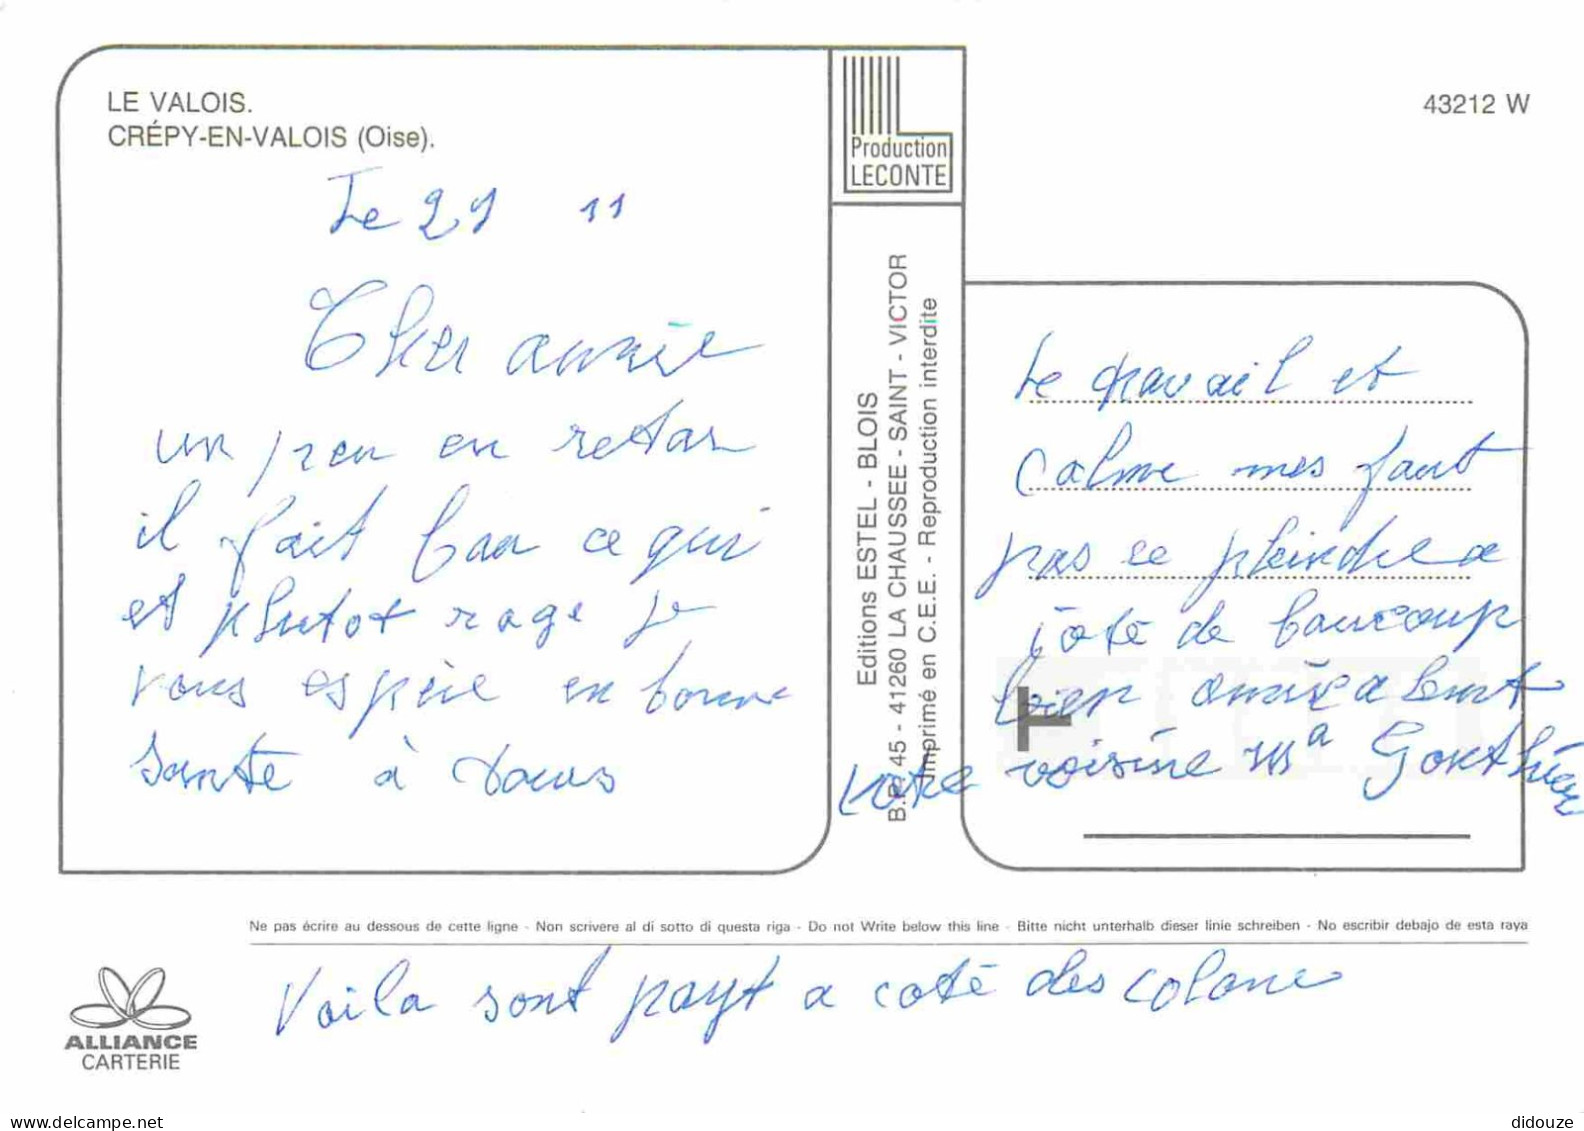 LE VALOIS.
CRÉPY-EN-VALOIS (Oise).
43212 W
Production
LECONTE
Le 21 11
Cher amie
un peu en retar
il fait bau ce qui
et plutot rage je
vous espère en bonne
santé à tous
Editions ESTEL - BLOIS
B.P. 45 - 41260 LA CHAUSSEE - SAINT - VICTOR
Imprimé en C.E.E. - Reproduction interdite
le travail et
calme mes faut
pas se pleindre a
côté de baucoup
bien amicalemt
votre voisine Gonthier
Ne pas écrire au dessous de cette ligne - Non scrivere al di sotto di questa riga - Do not Write below this line - Bitte nicht unterhalb dieser linie schreiben - No escribir debajo de esta raya
Voila sont payt a coté des colone
ALLIANCE
CARTERIE
www.delcampe.net
didouze